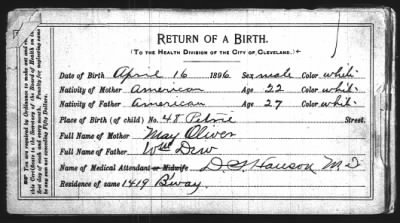 RETURN OF A BIRTH.
(TO THE HEALTH DIVISION OF THE CITY OF CLEVELAND.)
Date of Birth April 16 1896 Sex male Color white
Nativity of Mother American Age 22 Color whit.
Nativity of Father American Age 27 Color whit.
Place of Birth (of child) No. 48 Street.
Full Name of Mother May Oliver
Full Name of Father Wm Drew
Name of Medical Attendant or Midwife D. S. Hanson M.D.
Residence of same 1419 B'way.
You are required by Ordinance to make out and return
this Certificate to the Secretary of the Board of Health on the
first day of each and every month. Penalty for neglecting same
is any sum not exceeding Fifty Dollars.